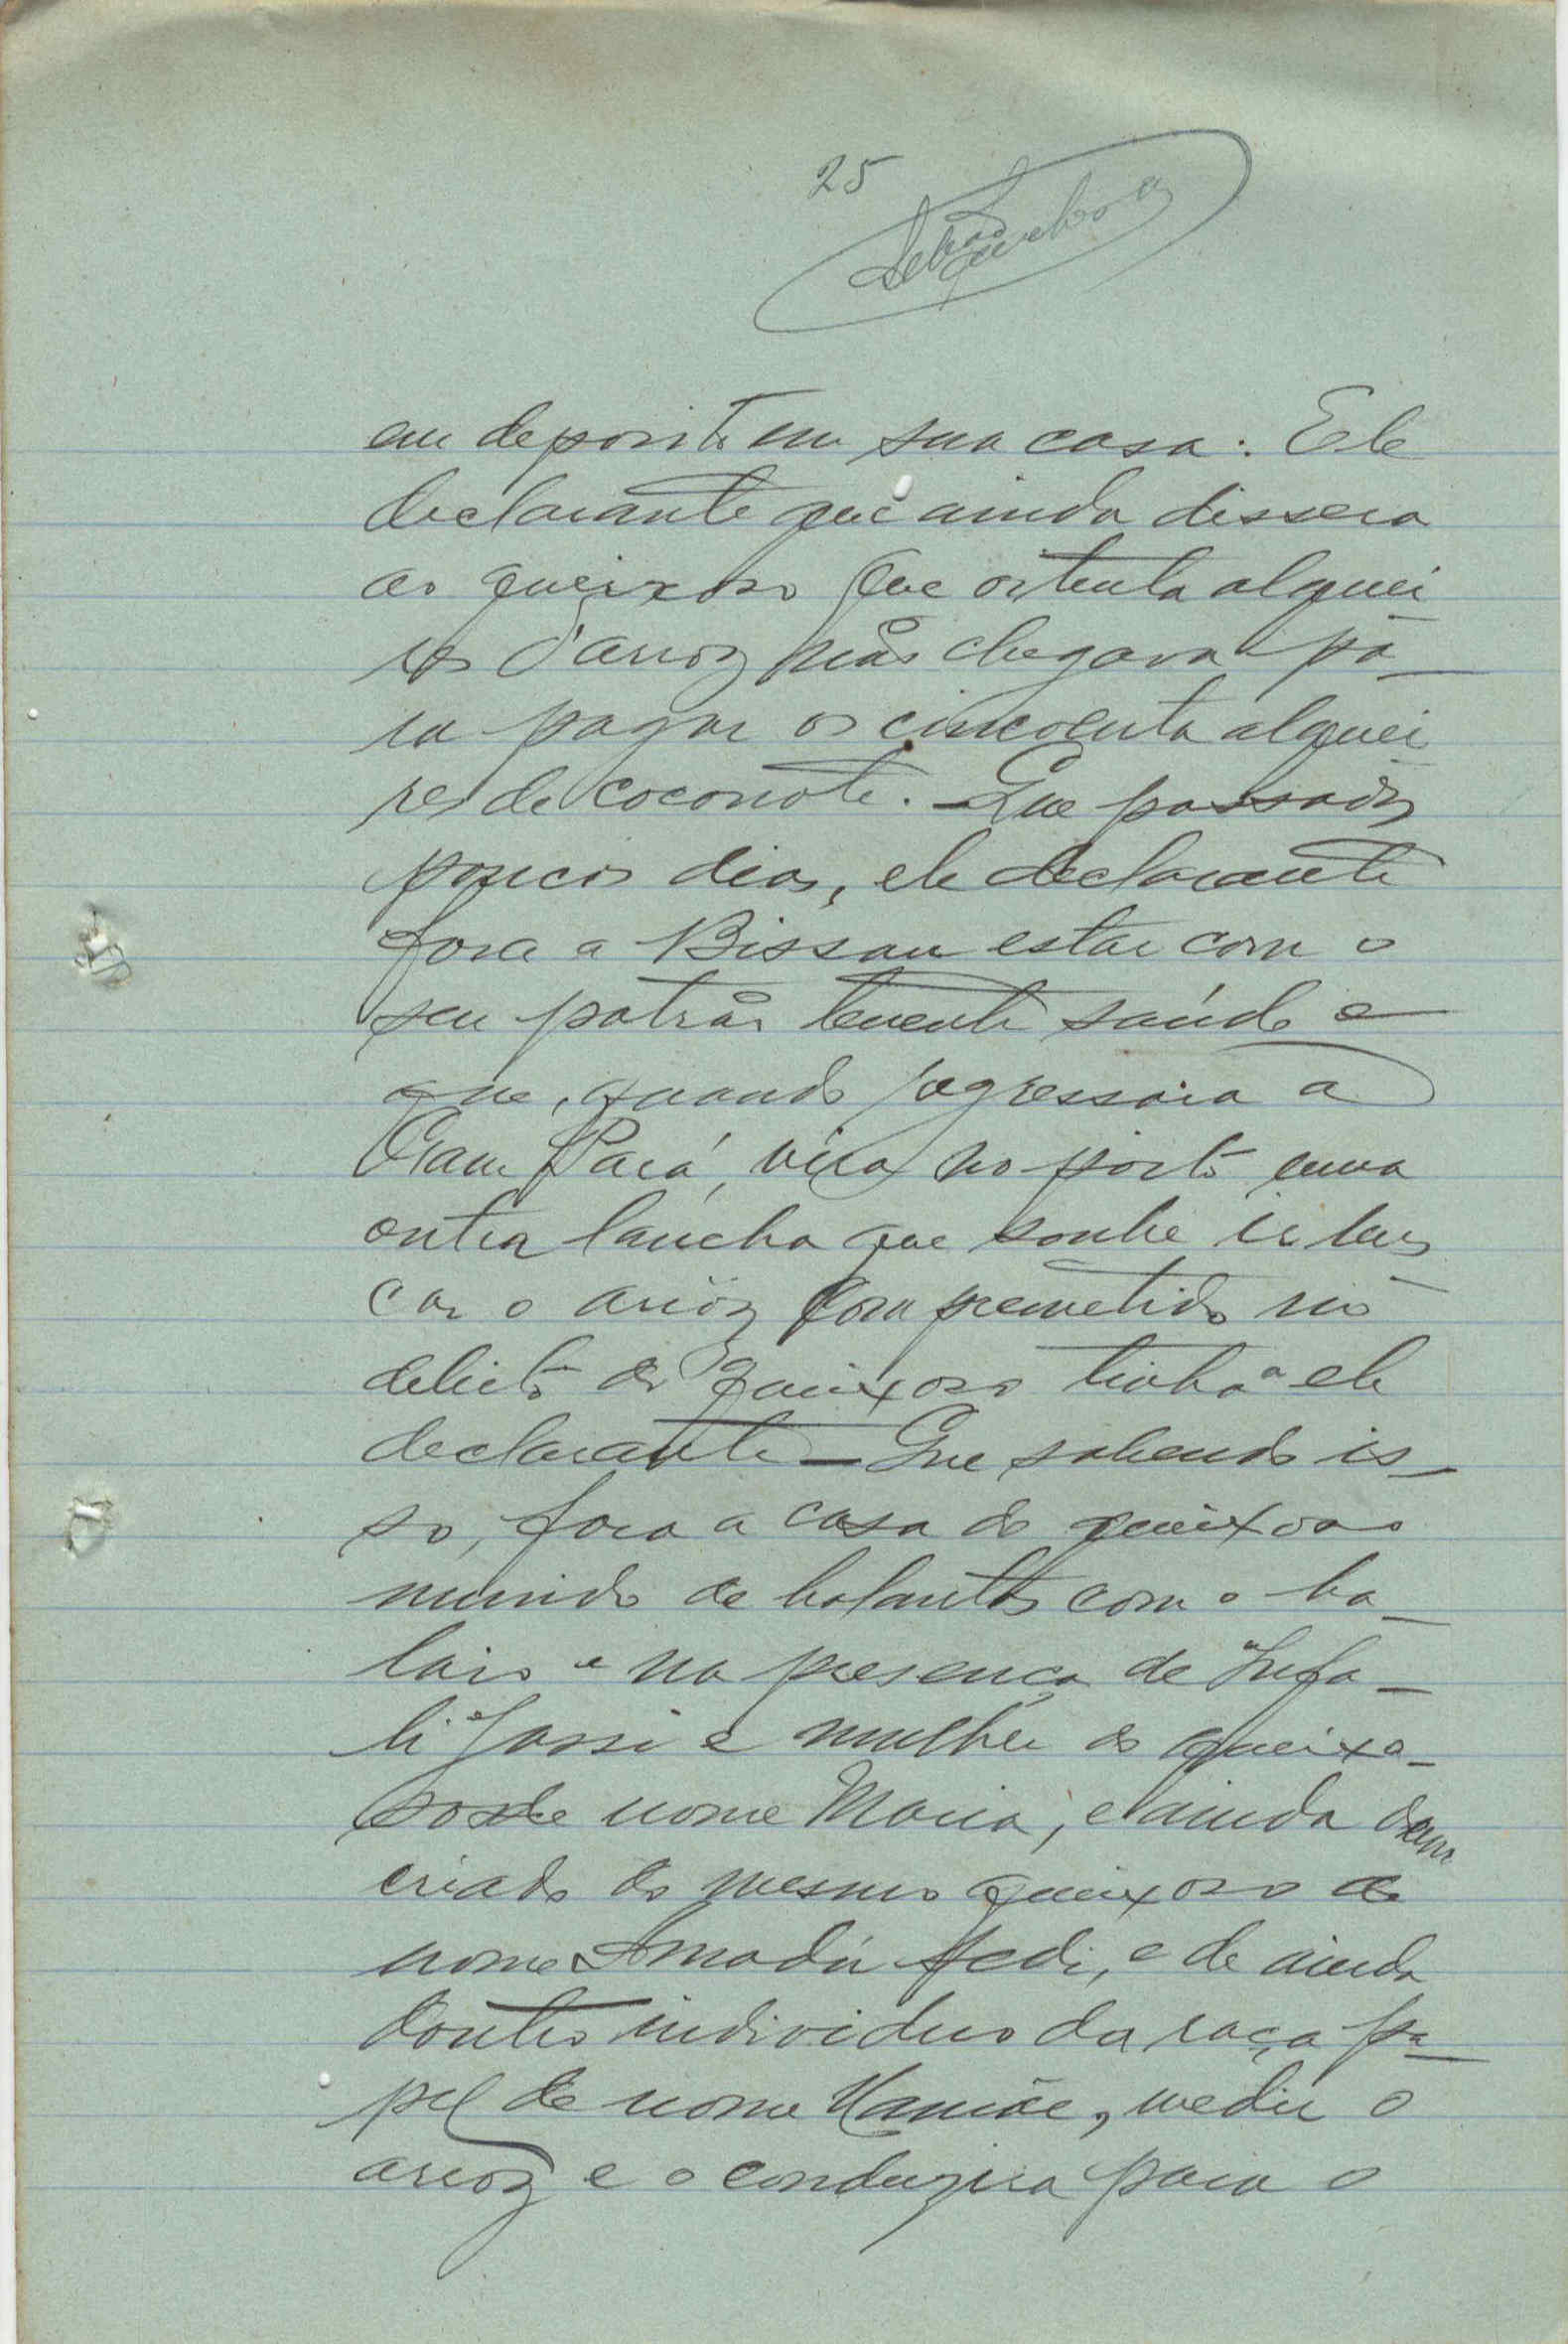 25
em deposito em sua casa. Ele
declarante que ainda dissera
ao queixoso que oitenta alquei
res d'arroz não chegava pa-
ra pagar os cincoenta alquei
res de coconote. - Que passados
poucos dias, ele declarante
fora a Bissau estar com o
seu patrão tenente saúde e
que, quando regressara a
Pará, vira no porto uma
outra lancha que soube ir bus
car o arroz comprometido no
debito do queixoso tinha a ele
declarante - Que sabendo is-
so, fora a casa do queixoso
munido de balantas com o ba-
laio e na presença de Infa-
li e mulher do queixo-
so de nome Maria, e ainda dum
criado do mesmo queixoso de
nome Amadú, e de ainda
doutro individuo da raça pa-
pel de nome, medir o
arroz e o conduzira para o